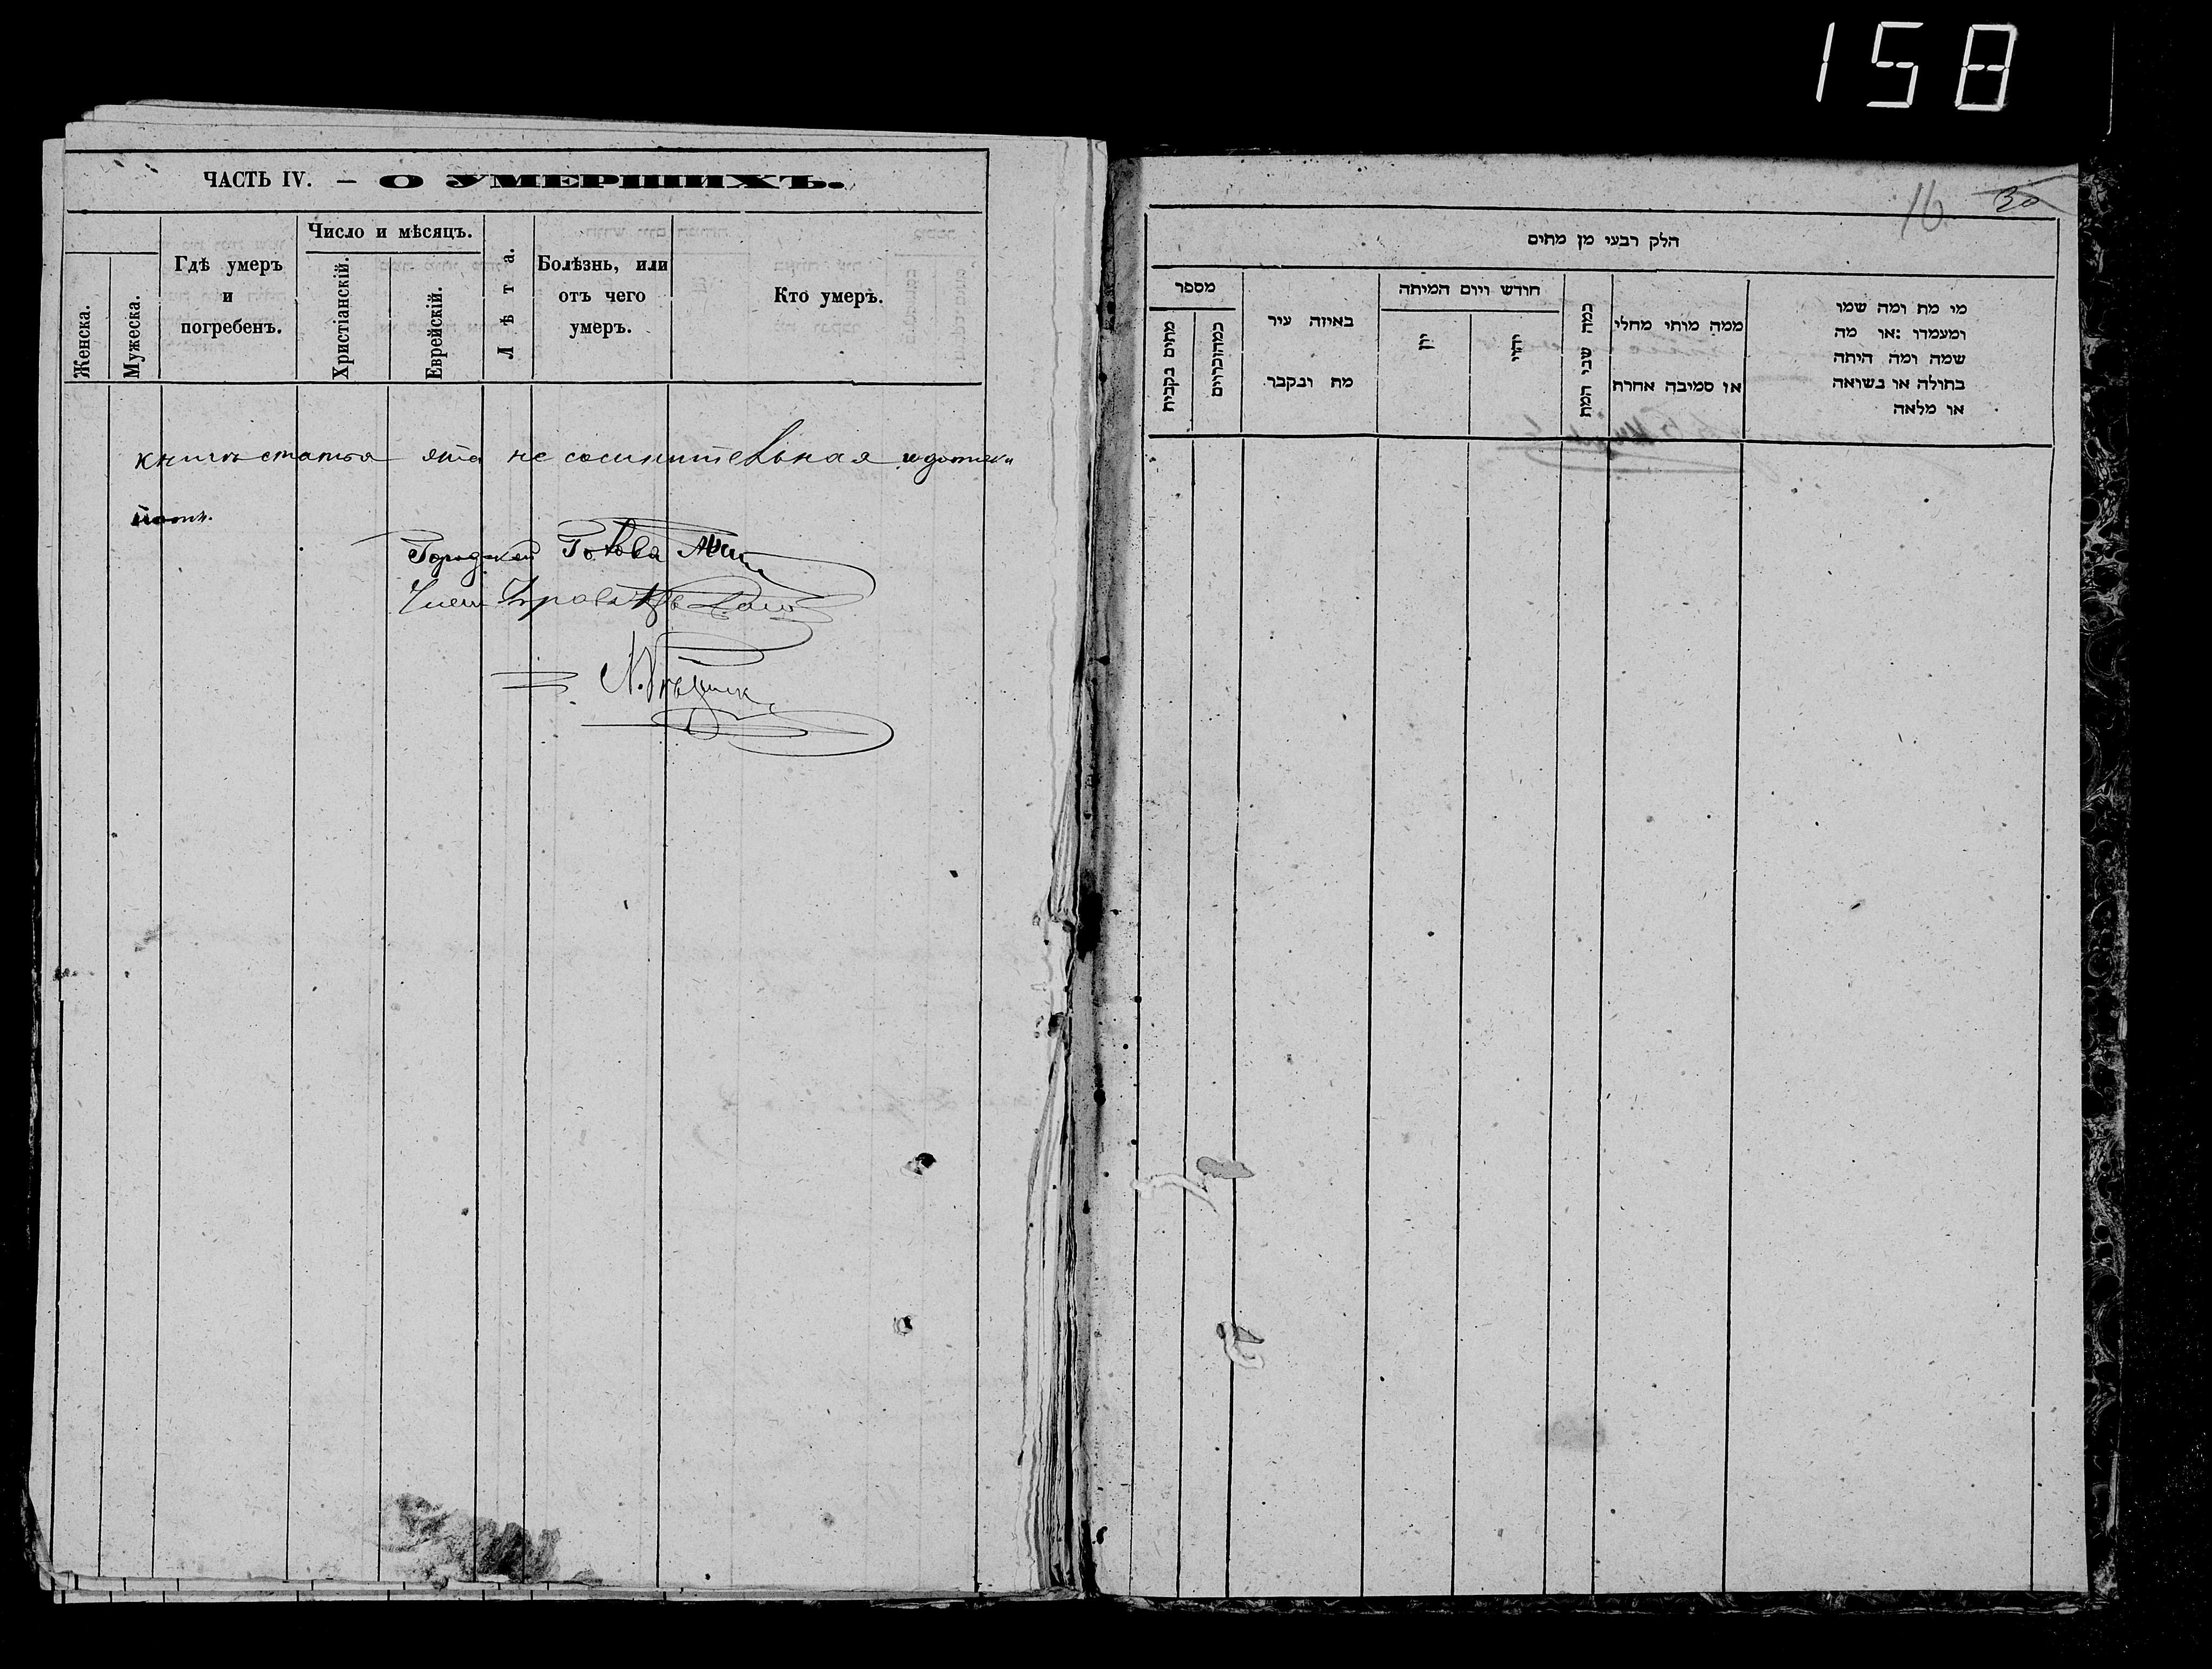 158
ЧАСТЬ IV. — О УМЕРШИХЪ.
Женска.
Мужеска.
Гдѣ умеръ
и
погребенъ.
Число и мѣсяцъ.
Христіанскій.
Еврейскій.
Лѣта.
Болѣзнь, или
отъ чего
умеръ.
Кто умеръ.
статья эта не сомнительная
Городской Голова
Членъ
16 30
חלק רבעי מן מתים
מספר
מתים בקבית
במחוברים
באיזה עיר
מת ונקבר
חודש ויום המיתה
יון
יהוי
כמה שני המת
ממה מותי מחלי
או סמיבה אחרת
מי מת ומה שמו
ומעמדו :או מה
שמה ומה היתה
בתולה או נשואה
או מלאה